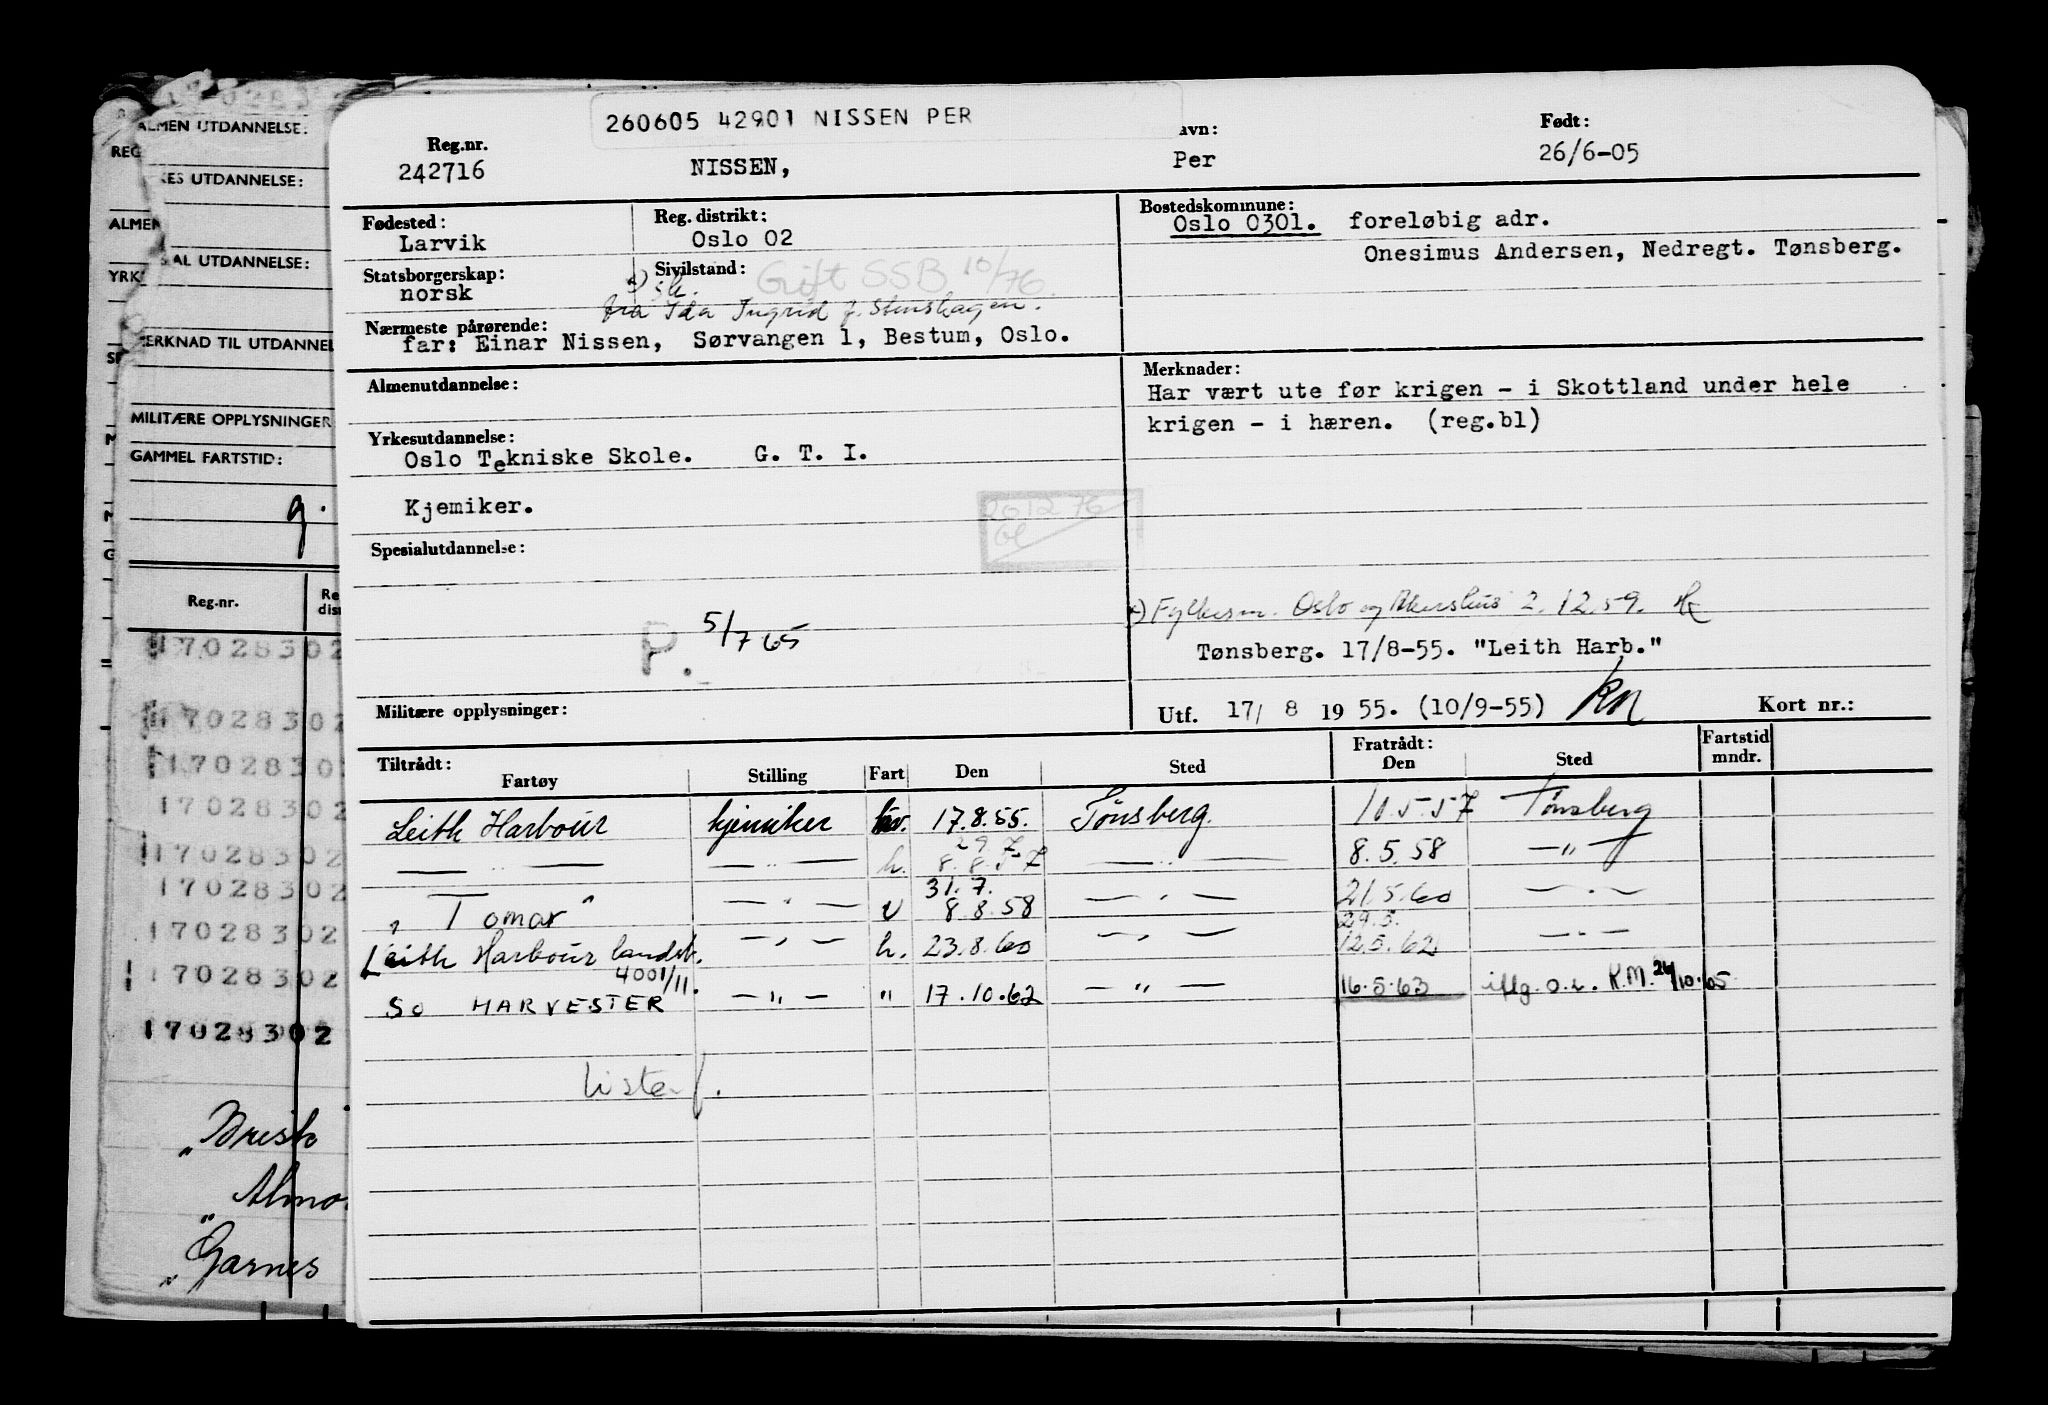 260605 42901 NISSEN PER
Reg.nr. avn: Født:
242716 NISSEN, Per 26/6-05
Fødested: Reg. distrikt: Bostedskommune:
Larvik Oslo 02 Oslo 0301. foreløbig adr.
Onesimus Andersen, Nedregt. Tønsberg.
Statsborgerskap: Sivilstand: Gift SSB 10/76.
norsk
fra Ida Ingrid f. Stenshagen.
Nærmeste pårørende:
far: Einar Nissen, Sørvangen 1, Bestum, Oslo.
Almenutdannelse: Merknader:
Har vært ute før krigen - i Skottland under hele
krigen - i hæren. (reg.bl)
Yrkesutdannelse:
Oslo Tekniske Skole. G. T. I.
Kjemiker.
201276
Spesialutdannelse:
Fylkesm. Oslo og Akershus 2.12.59.
P. 5/7 65
Tønsberg. 17/8-55. "Leith Harb."
Militære opplysninger: Utf. 17/ 8 1955. (10/9-55) Kort nr.:
Tiltrådt: Fratrådt: Fartstid
Fartøy Stilling Fart Den Sted Den Sted mndr.
Leith Harbour kjemiker 17.8.55. Tønsberg. 10.5.57 Tønsberg
29 7
— " — — " — h. 8.8.57 — " — 8.5.58 — " —
31.7.
" Tomar " — " — v 8.8.58 — " — 21.5.60 — " —
29.5.
Leith Harbour landst. — " — h. 23.8.60 — " — 12.5.62 — " —
4001/11.
So HARVESTER — " — " 17.10.62 — " — 16.5.63 iflg. o.r. R.M. 26/10.65
ALMEN UTDANNELSE:
REG
KES UTDANNELSE:
ALMEN
AL UTDANNELSE:
YRK
ERKNAD TIL UTDANNEL
MILITÆRE OPPLYSNINGER
GAMMEL FARTSTID:
g.
Reg.nr. Re
dist
17028302
17028302
1702830
1702830
17028302
17028302
17028302
17028302
17028302
"Brest
"Almo
"Garnes